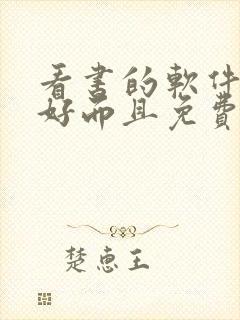 看書的軟件
好而且免費
楚惠王